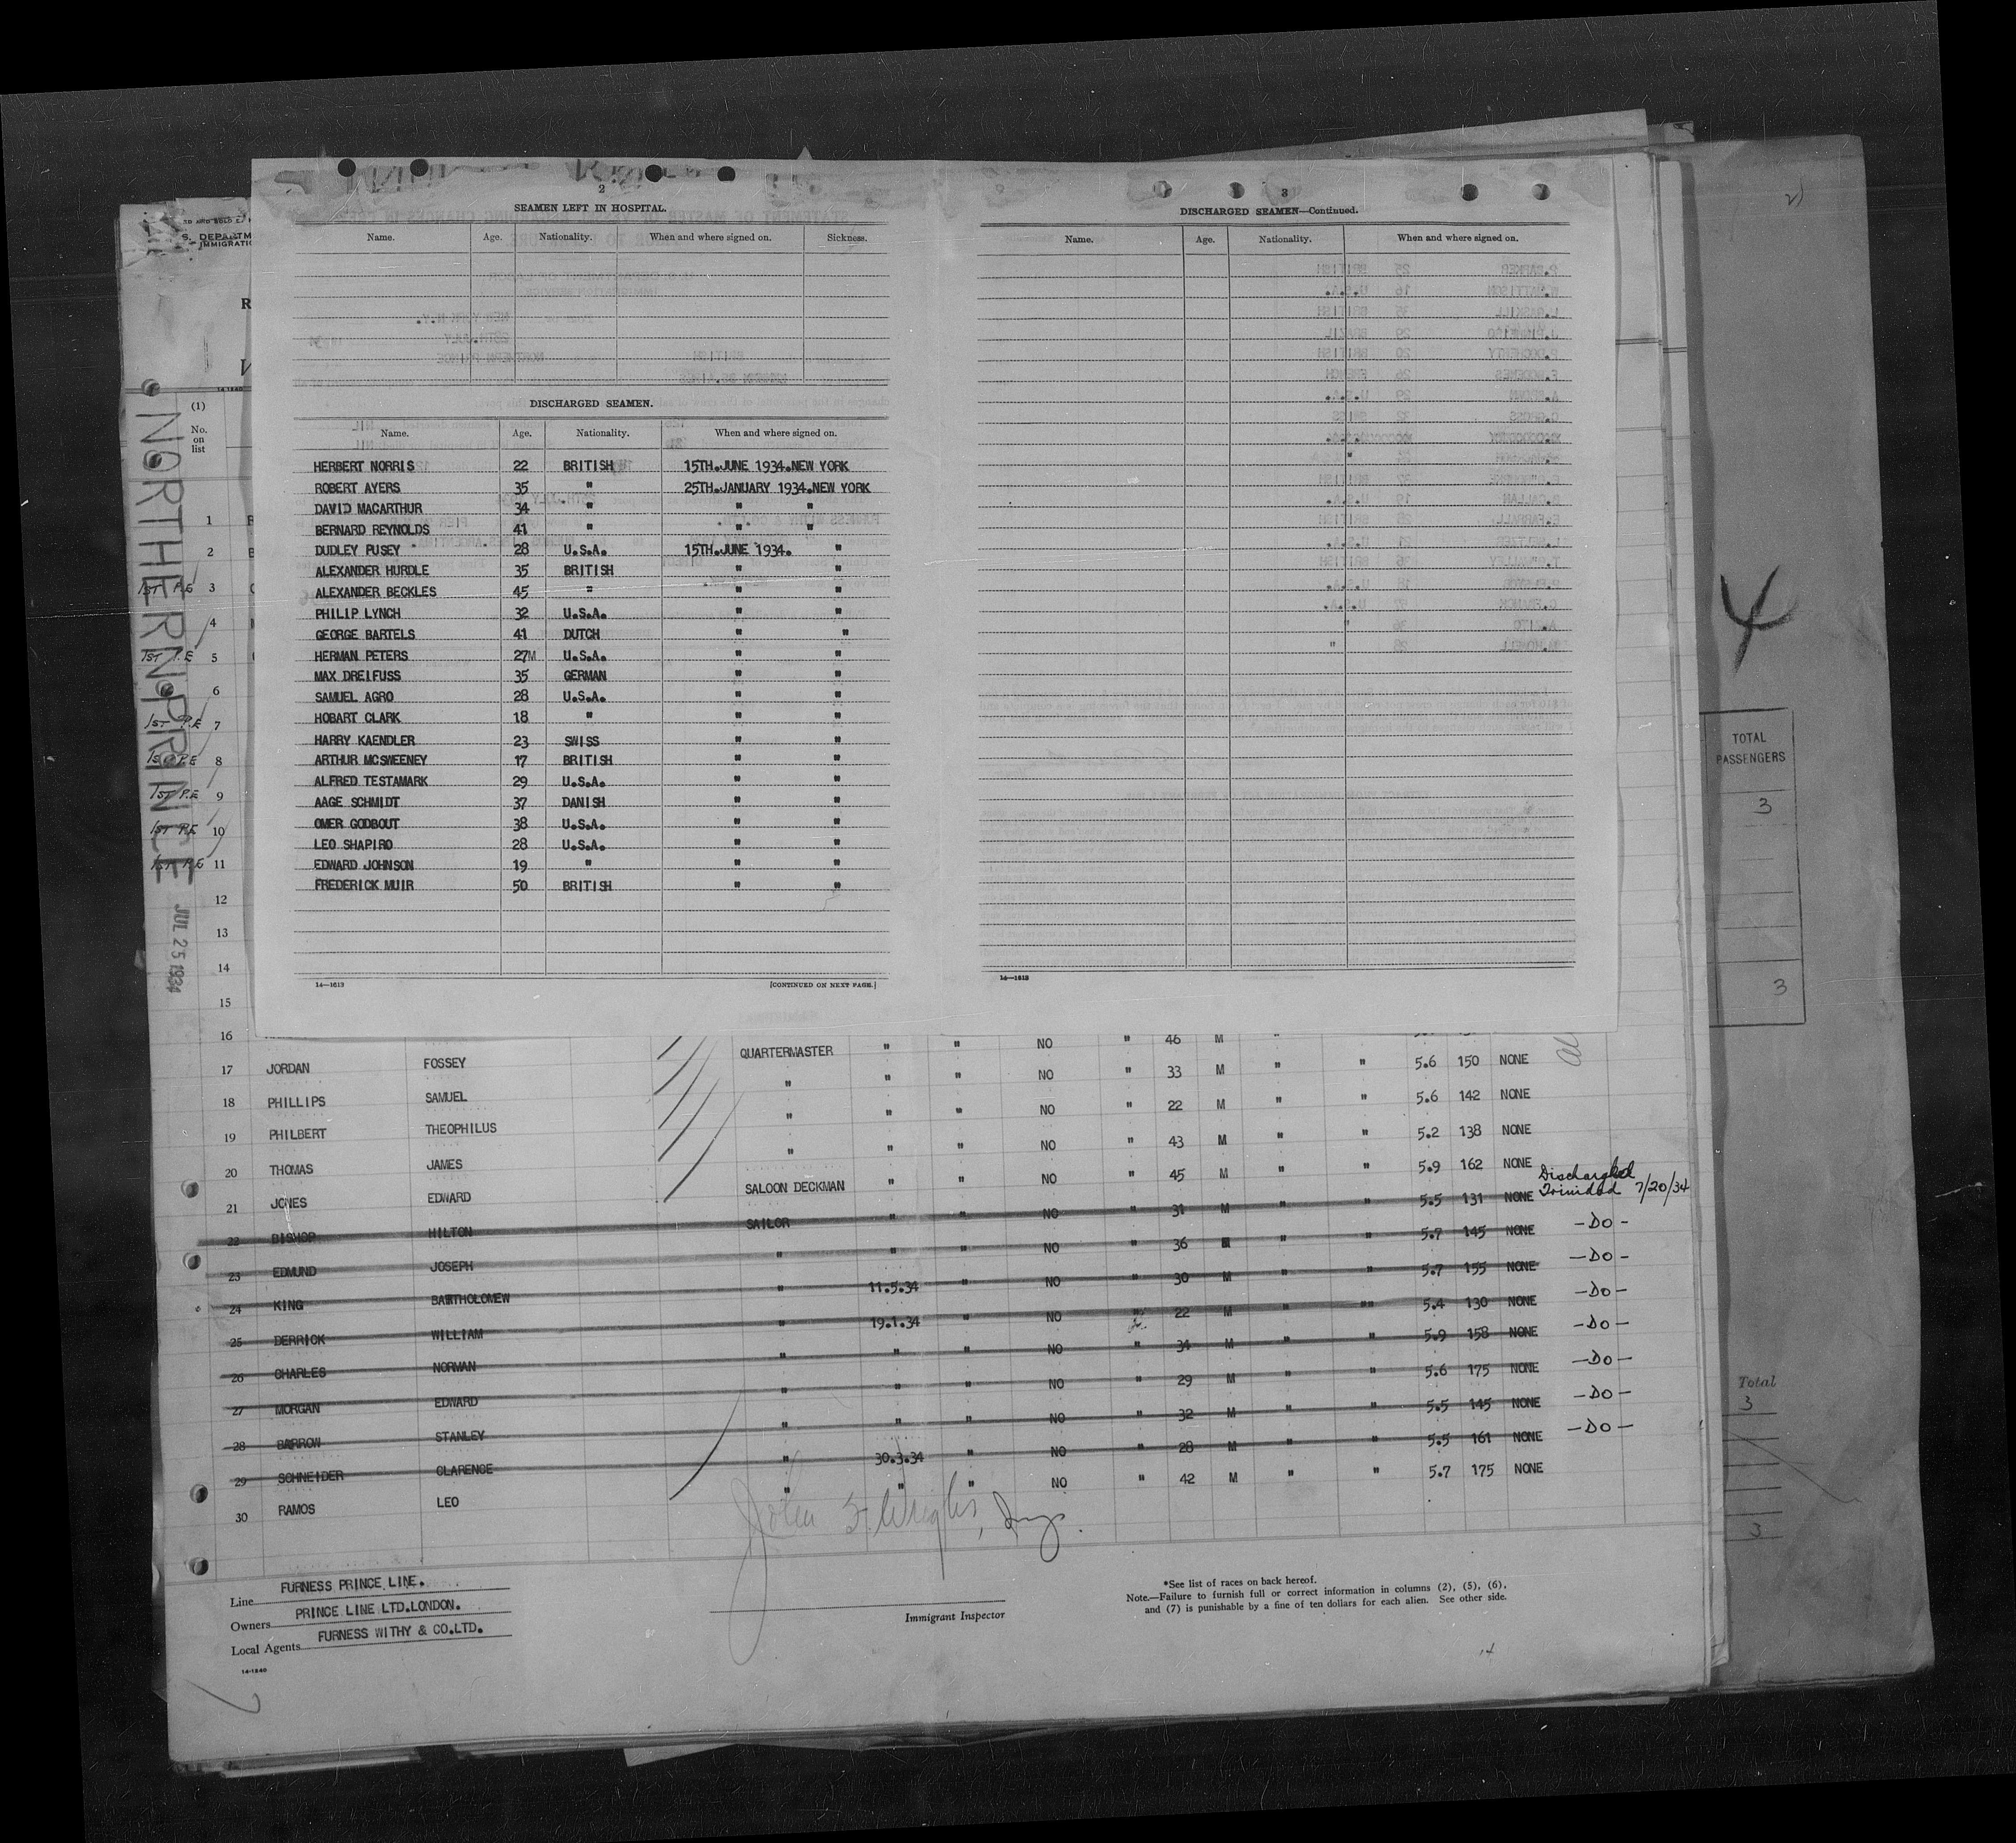 2
SEAMEN LEFT IN HOSPITAL.
Name. Age. Nationality. When and where signed on. Sickness.
DISCHARGED SEAMEN.
Name. Age. Nationality. When and where signed on.
HERBERT NORRIS 22 BRITISH 15TH.JUNE 1934.NEW YORK
ROBERT AYERS 35 " 25TH.JANUARY 1934.NEW YORK
DAVID MACARTHUR 34 " " "
BERNARD REYNOLDS 41 " " "
DUDLEY PUSEY 28 U.S.A. 15TH.JUNE 1934. "
ALEXANDER HURDLE 35 BRITISH " "
ALEXANDER BECKLES 45 " " "
PHILIP LYNCH 32 U.S.A. " "
GEORGE BARTELS 41 DUTCH " "
HERMAN PETERS 27M U.S.A. " "
MAX DREIFUSS 35 GERMAN " "
SAMUEL AGRO 28 U.S.A. " "
HOBART CLARK 18 " " "
HARRY KAENDLER 23 SWISS " "
ARTHUR MCSWEENEY 17 BRITISH " "
ALFRED TESTAMARK 29 U.S.A. " "
AAGE SCHMIDT 37 DANISH " "
OMER GODBOUT 38 U.S.A. " "
LEO SHAPIRO 28 U.S.A. " "
EDWARD JOHNSON 19 " " "
FREDERICK MUIR 50 BRITISH " "
14—1613 [CONTINUED ON NEXT PAGE.]
3
DISCHARGED SEAMEN—Continued.
Name. Age. Nationality. When and where signed on.
14—1613
S. DEPARTM
IMMIGRATIO
14-1240
(1)
No.
on
list
NORTHERN PRINCE
JUL 25 1934
1
2
1ST P.E 3
4
1ST P.E 5
6
1ST P.E 7
1ST P.E 8
1ST P.E 9
1ST P.E 10
1ST P.E 11
12
13
14
15
16 " " NO " 46 M "
17 JORDAN FOSSEY QUARTERMASTER " " NO " 33 M " " 5.6 150 NONE
18 PHILLIPS SAMUEL " " " NO " 22 M " " 5.6 142 NONE
19 PHILBERT THEOPHILUS " " " NO " 43 M " " 5.2 138 NONE
20 THOMAS JAMES " " " NO " 45 M " " 5.9 162 NONE
21 JONES EDWARD SALOON DECKMAN " " NO " 31 M " " 5.5 131 NONE Discharged Trinidad 7/20/34
22 BISHOP HILTON SAILOR " " NO " 36 M " " 5.7 145 NONE —DO—
23 EDMUND JOSEPH " 11.5.34 " NO " 30 M " " 5.7 155 NONE —DO—
24 KING BARTHOLOMEW " 19.1.34 " NO " 22 M " "" 5.4 130 NONE —DO—
25 DERRICK WILLIAM " " " NO " 34 M " " 5.9 158 NONE —DO—
26 CHARLES NORMAN " " " NO " 29 M " " 5.6 175 NONE —DO—
27 MORGAN EDWARD " " " NO " 32 M " " 5.5 145 NONE —DO—
28 BARROW STANLEY " 30.3.34 " NO " 28 M " " 5.5 161 NONE —DO—
29 SCHNEIDER CLARENCE " " " NO " 42 M " " 5.7 175 NONE
30 RAMOS LEO
Line FURNESS PRINCE LINE.
Owners PRINCE LINE LTD.LONDON.
Local Agents FURNESS WITHY & CO.LTD.
14-1240
Immigrant Inspector
*See list of races on back hereof.
Note.—Failure to furnish full or correct information in columns (2), (5), (6),
and (7) is punishable by a fine of ten dollars for each alien. See other side.
4
TOTAL
PASSENGERS
3
3
Total
3
3